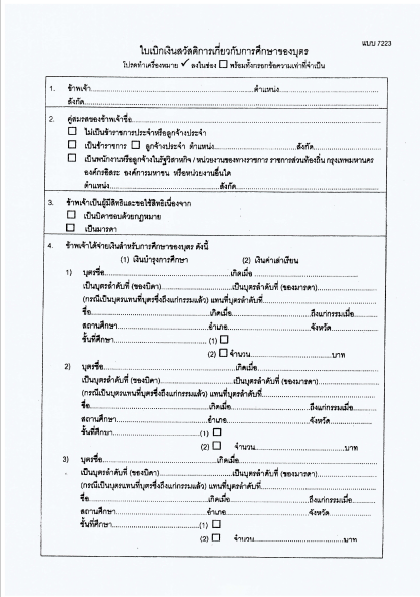 แบบ 7223
ใบเบิกเงินสวัสดิการเกี่ยวกับการศึกษาของบุตร
โปรดทำเครื่องหมาย ✓ ลงในช่อง ☐ พร้อมทั้งกรอกข้อความเท่าที่จำเป็น
1. ข้าพเจ้า..........ตำแหน่ง..........
สังกัด..........
2. คู่สมรสของข้าพเจ้าชื่อ..........
☐ ไม่เป็นข้าราชการประจำหรือลูกจ้างประจำ
☐ เป็นข้าราชการ ☐ ลูกจ้างประจำ ตำแหน่ง..........สังกัด..........
☐ เป็นพนักงานหรือลูกจ้างในรัฐวิสาหกิจ / หน่วยงานของทางราชการ ราชการส่วนท้องถิ่น กรุงเทพมหานคร
องค์กรอิสระ องค์การมหาชน หรือหน่วยงานอื่นใด
ตำแหน่ง..........สังกัด..........
3. ข้าพเจ้าเป็นผู้มีสิทธิและขอใช้สิทธิเนื่องจาก
☐ เป็นบิดาชอบด้วยกฎหมาย
☐ เป็นมารดา
4. ข้าพเจ้าได้จ่ายเงินสำหรับการศึกษาของบุตร ดังนี้
(1) เงินบำรุงการศึกษา (2) เงินค่าเล่าเรียน
1) บุตรชื่อ..........เกิดเมื่อ..........
เป็นบุตรลำดับที่ (ของบิดา)..........เป็นบุตรลำดับที่ (ของมารดา)..........
(กรณีเป็นบุตรแทนที่บุตรซึ่งถึงแก่กรรมแล้ว) แทนที่บุตรลำดับที่..........
ชื่อ..........เกิดเมื่อ..........ถึงแก่กรรมเมื่อ..........
สถานศึกษา..........อำเภอ..........จังหวัด..........
ชั้นที่ศึกษา..........(1) ☐
(2) ☐ จำนวน..........บาท
2) บุตรชื่อ..........เกิดเมื่อ..........
เป็นบุตรลำดับที่ (ของบิดา)..........เป็นบุตรลำดับที่ (ของมารดา)..........
(กรณีเป็นบุตรแทนที่บุตรซึ่งถึงแก่กรรมแล้ว) แทนที่บุตรลำดับที่..........
ชื่อ..........เกิดเมื่อ..........ถึงแก่กรรมเมื่อ..........
สถานศึกษา..........อำเภอ..........จังหวัด..........
ชั้นที่ศึกษา..........(1) ☐
(2) ☐ จำนวน..........บาท
3) บุตรชื่อ..........เกิดเมื่อ..........
เป็นบุตรลำดับที่ (ของบิดา)..........เป็นบุตรลำดับที่ (ของมารดา)..........
(กรณีเป็นบุตรแทนที่บุตรซึ่งถึงแก่กรรมแล้ว) แทนที่บุตรลำดับที่..........
ชื่อ..........เกิดเมื่อ..........ถึงแก่กรรมเมื่อ..........
สถานศึกษา..........อำเภอ..........จังหวัด..........
ชั้นที่ศึกษา..........(1) ☐
(2) ☐ จำนวน..........บาท